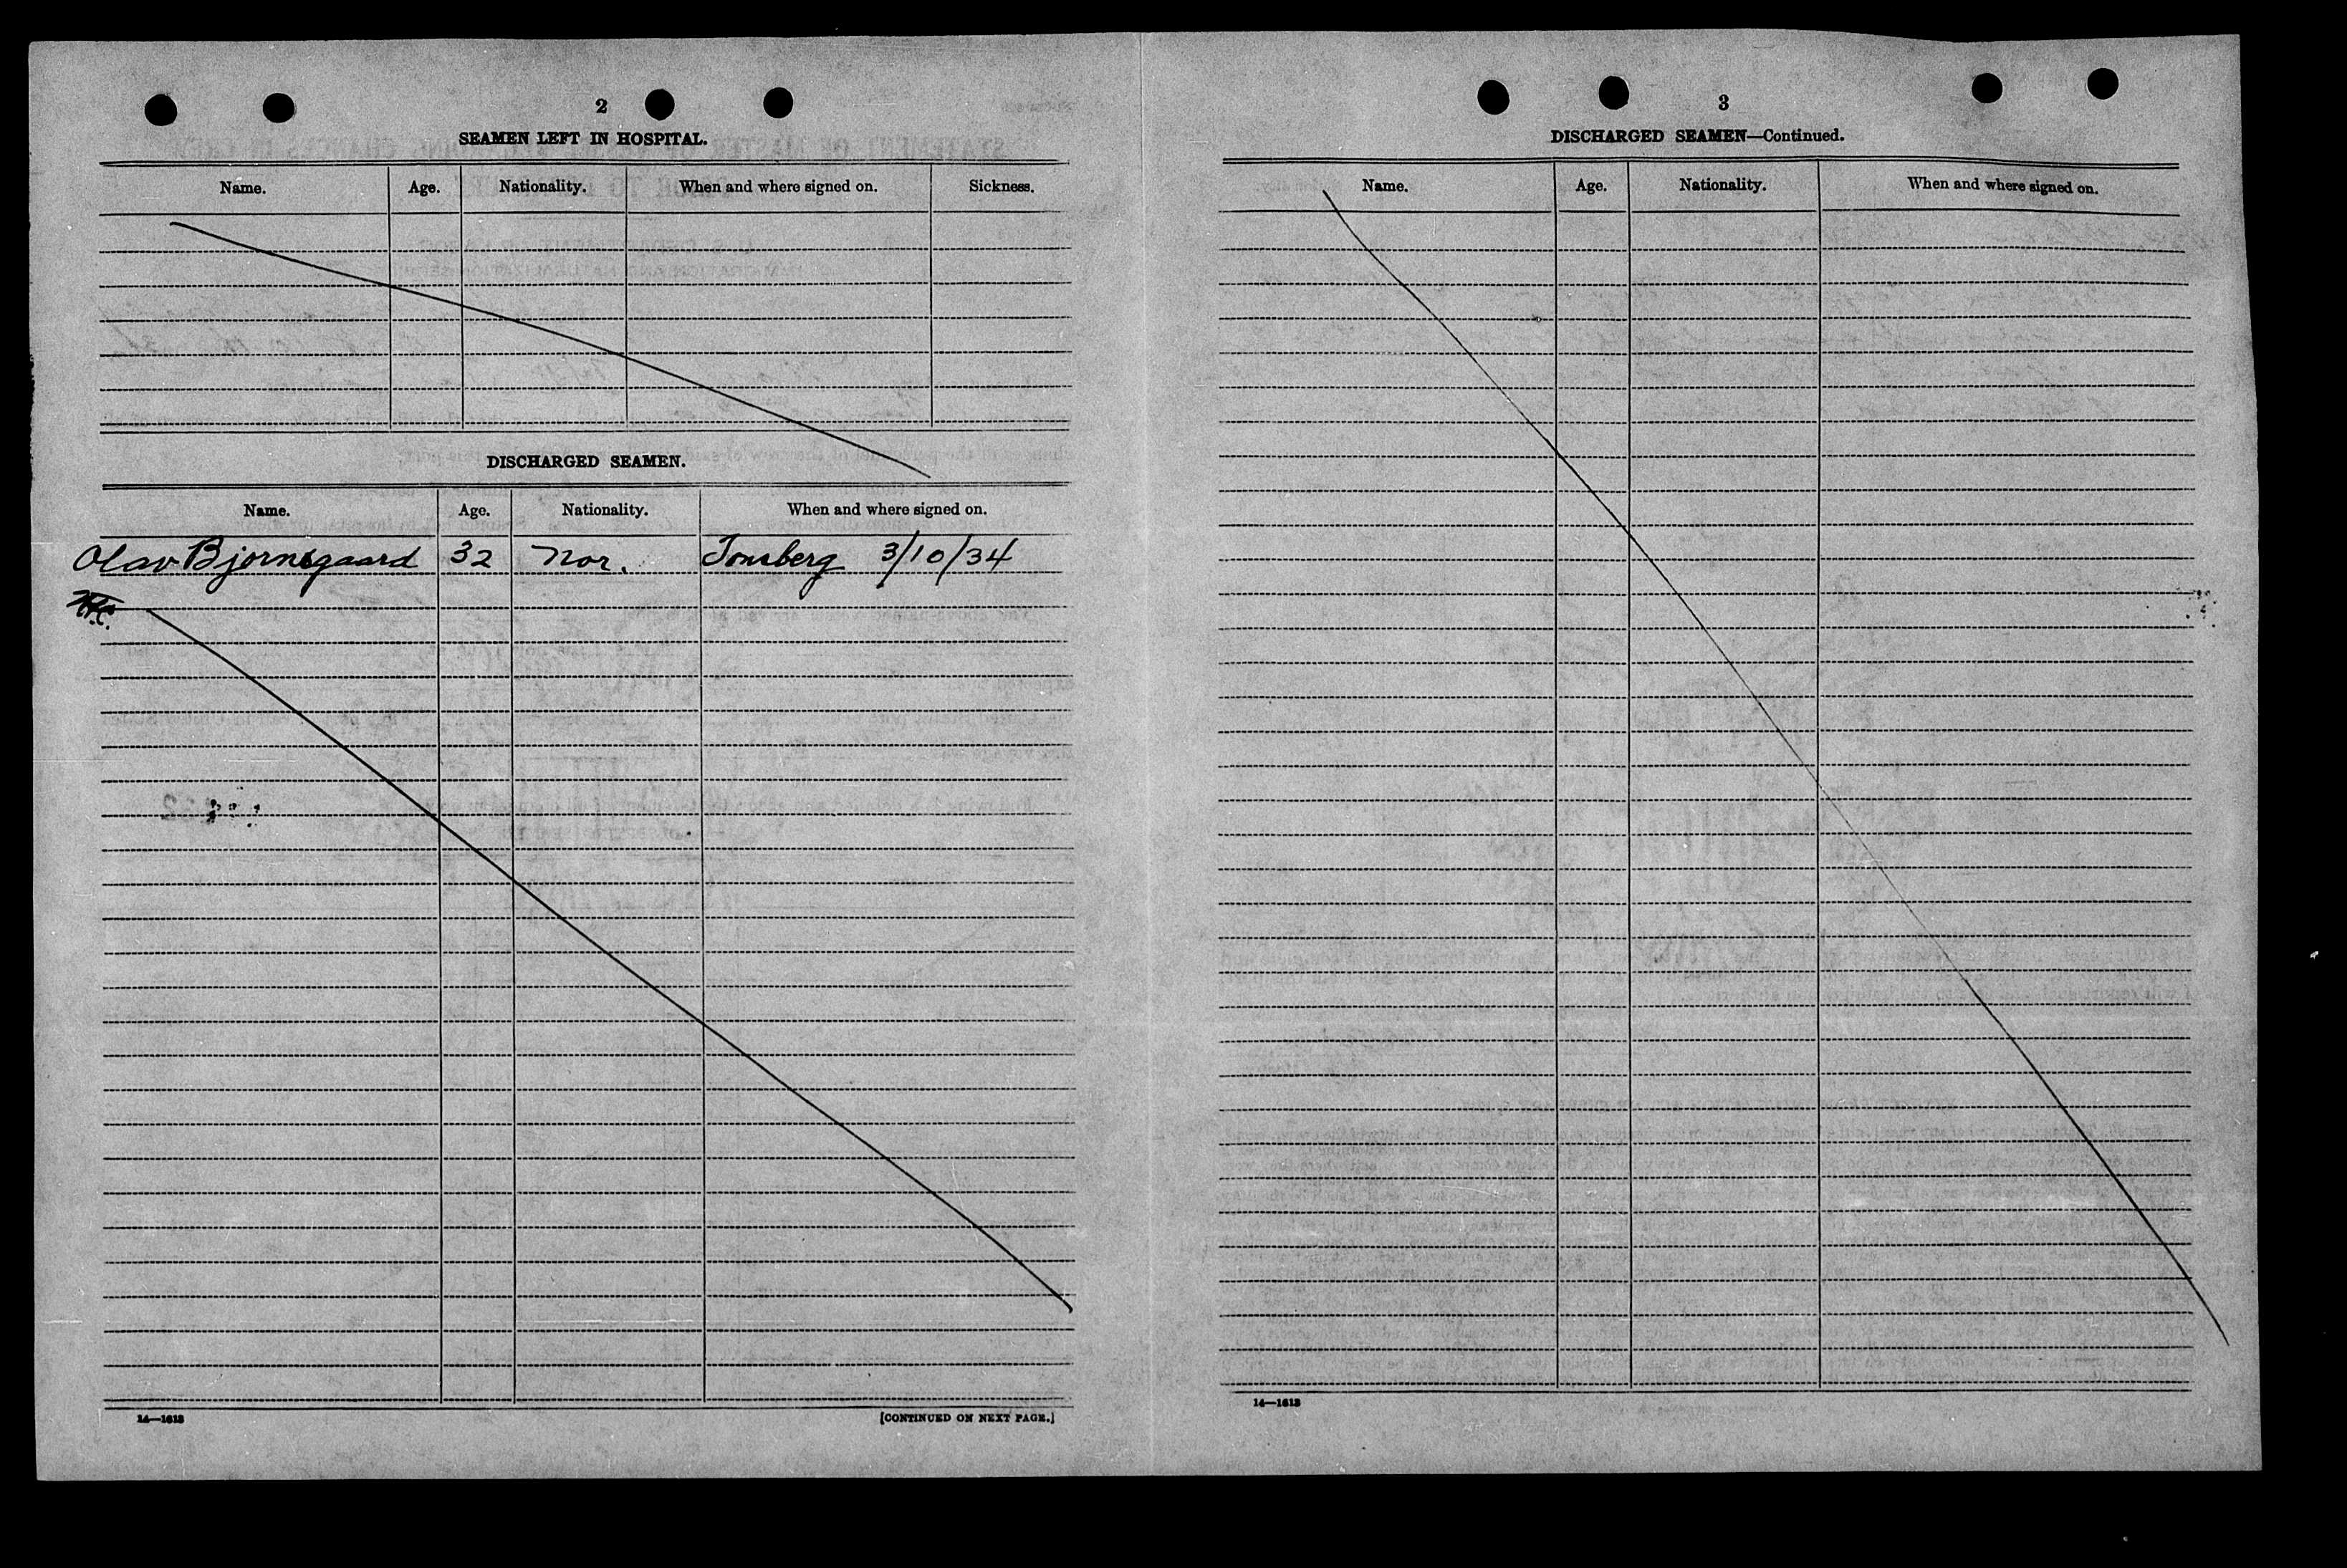 2
SEAMEN LEFT IN HOSPITAL.
Name. Age. Nationality. When and where signed on. Sickness.
DISCHARGED SEAMEN.
Name. Age. Nationality. When and where signed on.
Olav Bjornsgaard 32 Nor. Tonsberg 3/10/34
14—1613
[CONTINUED ON NEXT PAGE.]
3
DISCHARGED SEAMEN—Continued.
Name. Age. Nationality. When and where signed on.
14—1613